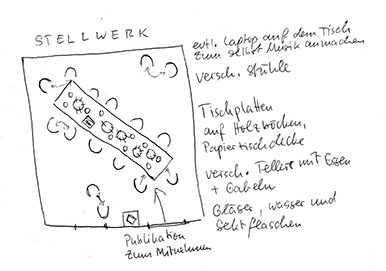 STELLWERK
evtl. Laptop auf dem Tisch
zum selbst Musik anmachen
versch. Stühle
Tischplatten
auf Holzböcken,
Papiertischdecke
versch. Teller mit Essen
+ Gabeln
Gläser, Wasser und
Sektflaschen
Publikation
zum Mitnehmen